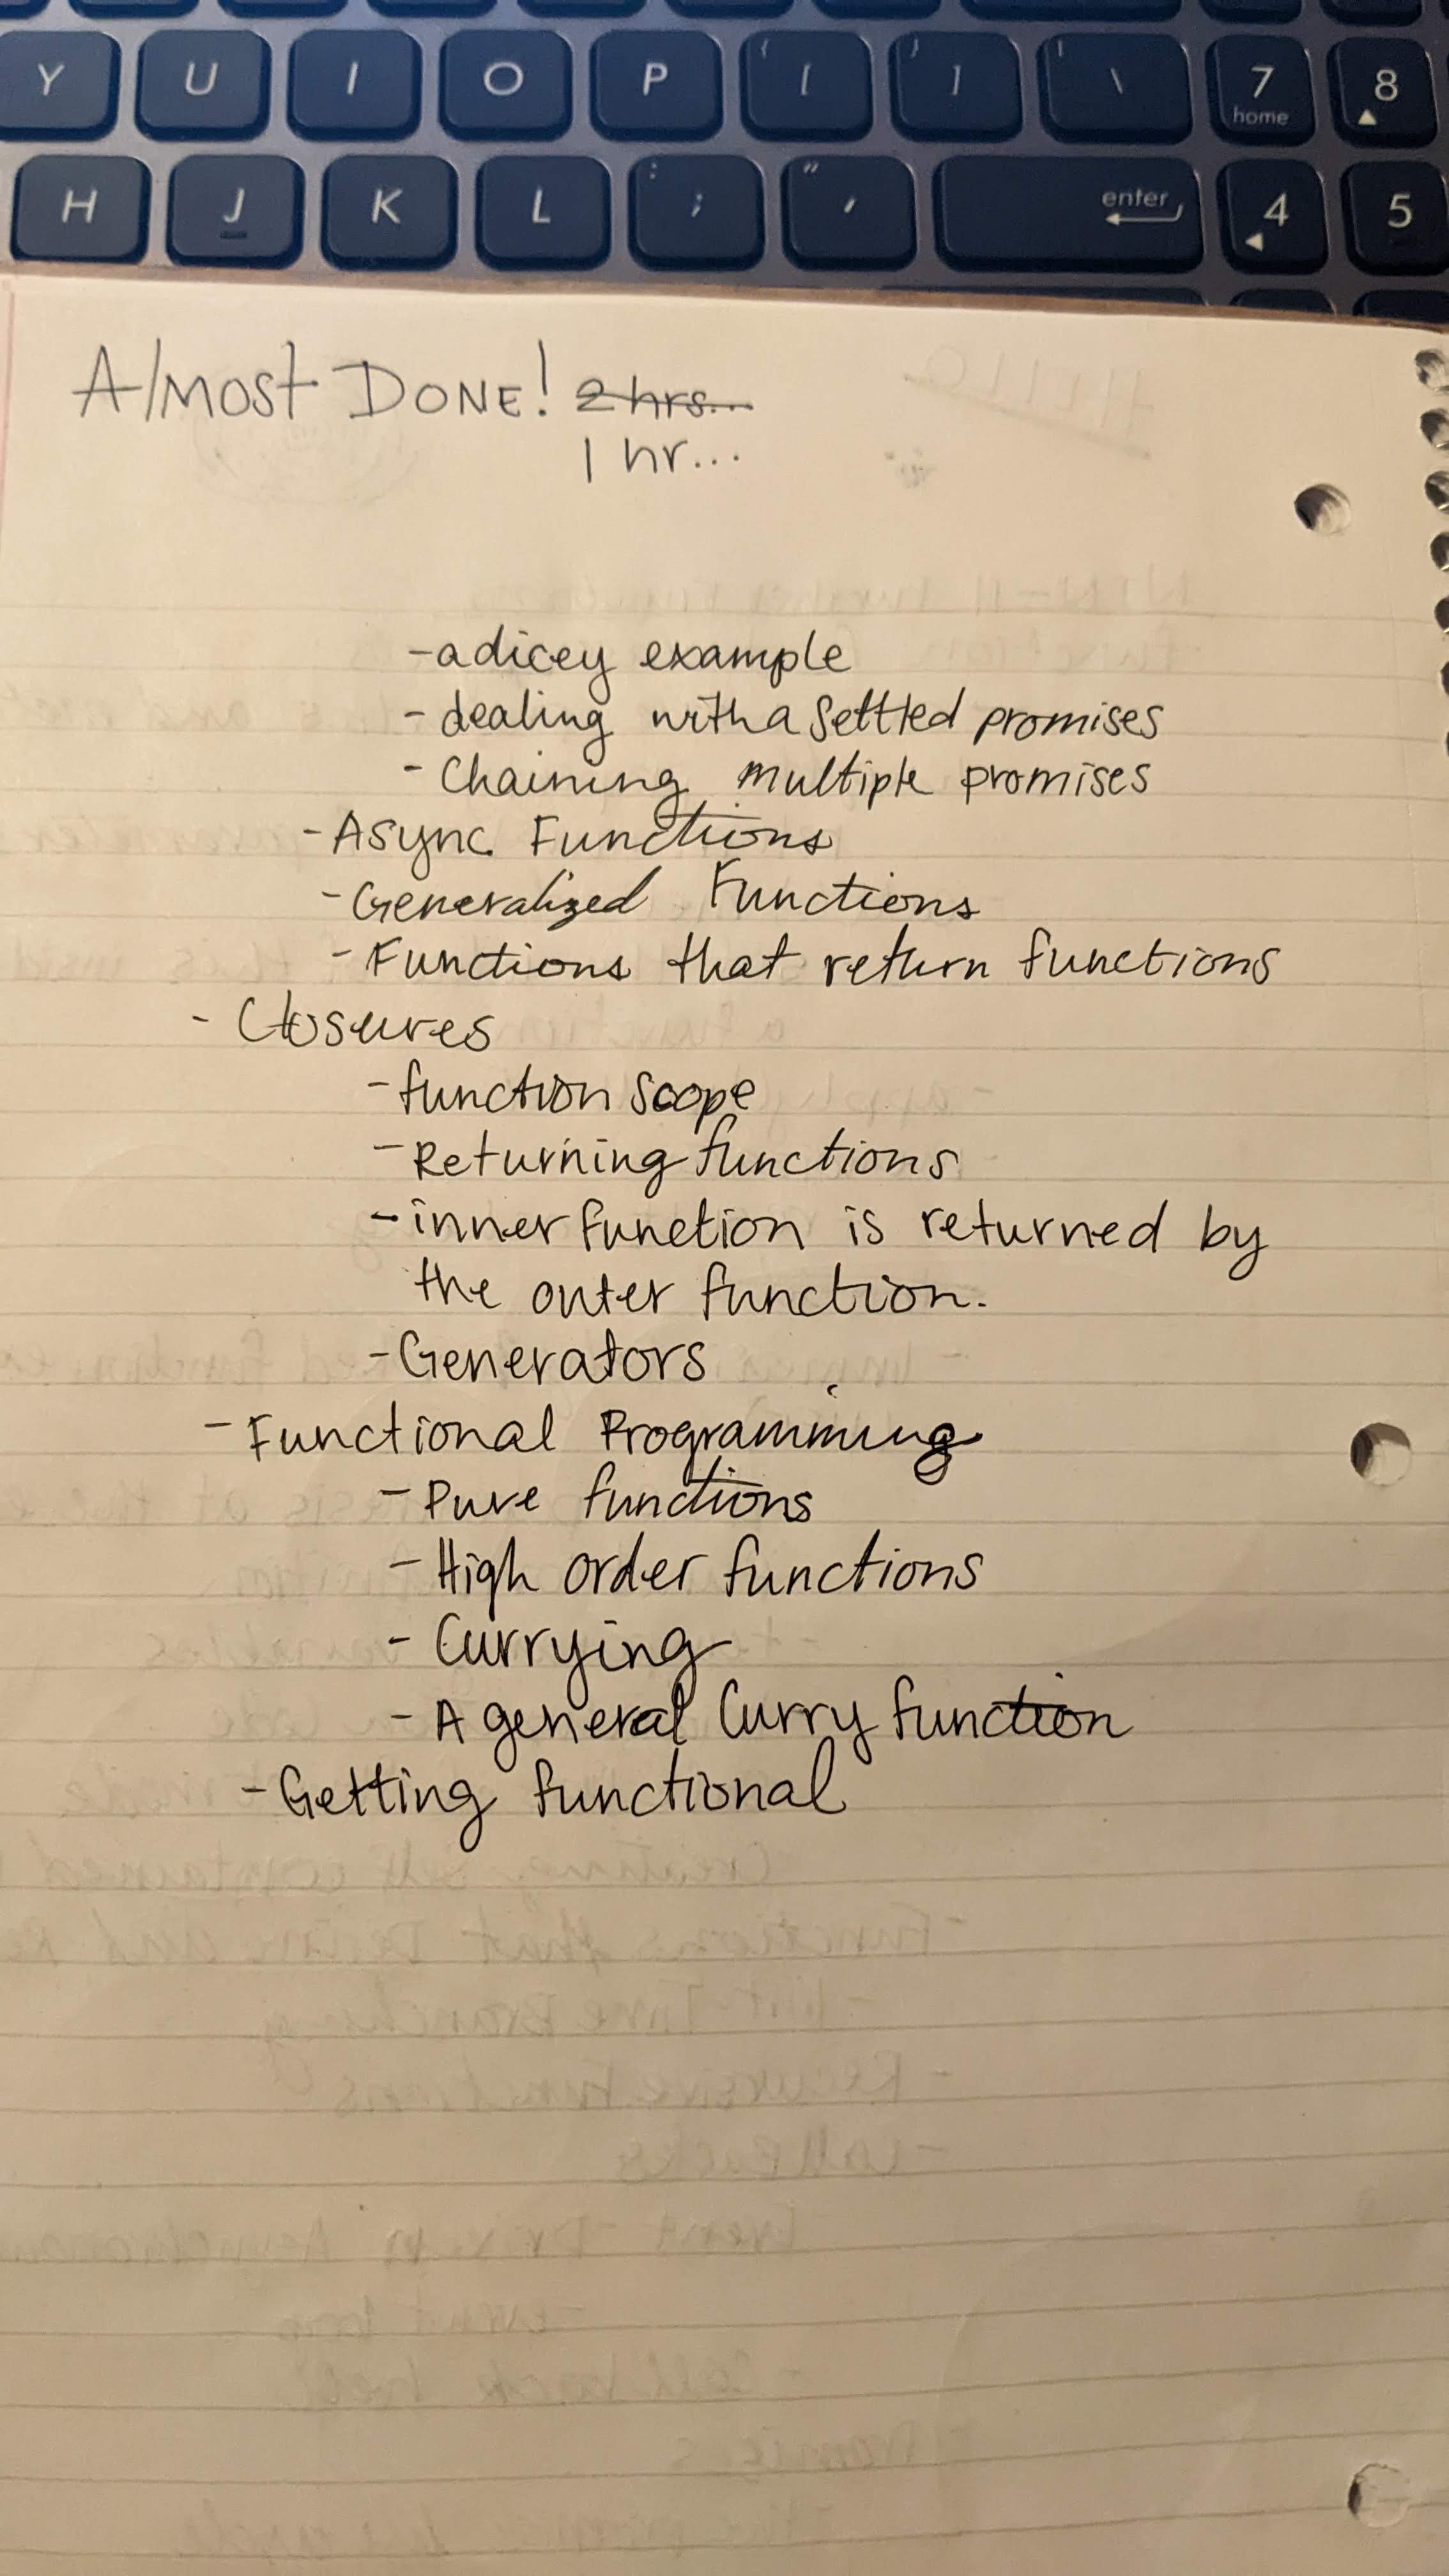 Y U I O P { [ } ] | \ 7 home 8
H J K L : ; " ' enter 4 5
Almost Done! 2 hrs...
1 hr...
- a dicey example
- dealing with a settled promises
- Chaining multiple promises
- Async Functions
- Generalized Functions
- Functions that return functions
- Closures
- function scope
- Returning functions
- inner function is returned by
the outer function.
- Generators
- Functional Programming
- Pure functions
- High order functions
- Currying
- A general Curry function
- Getting functional